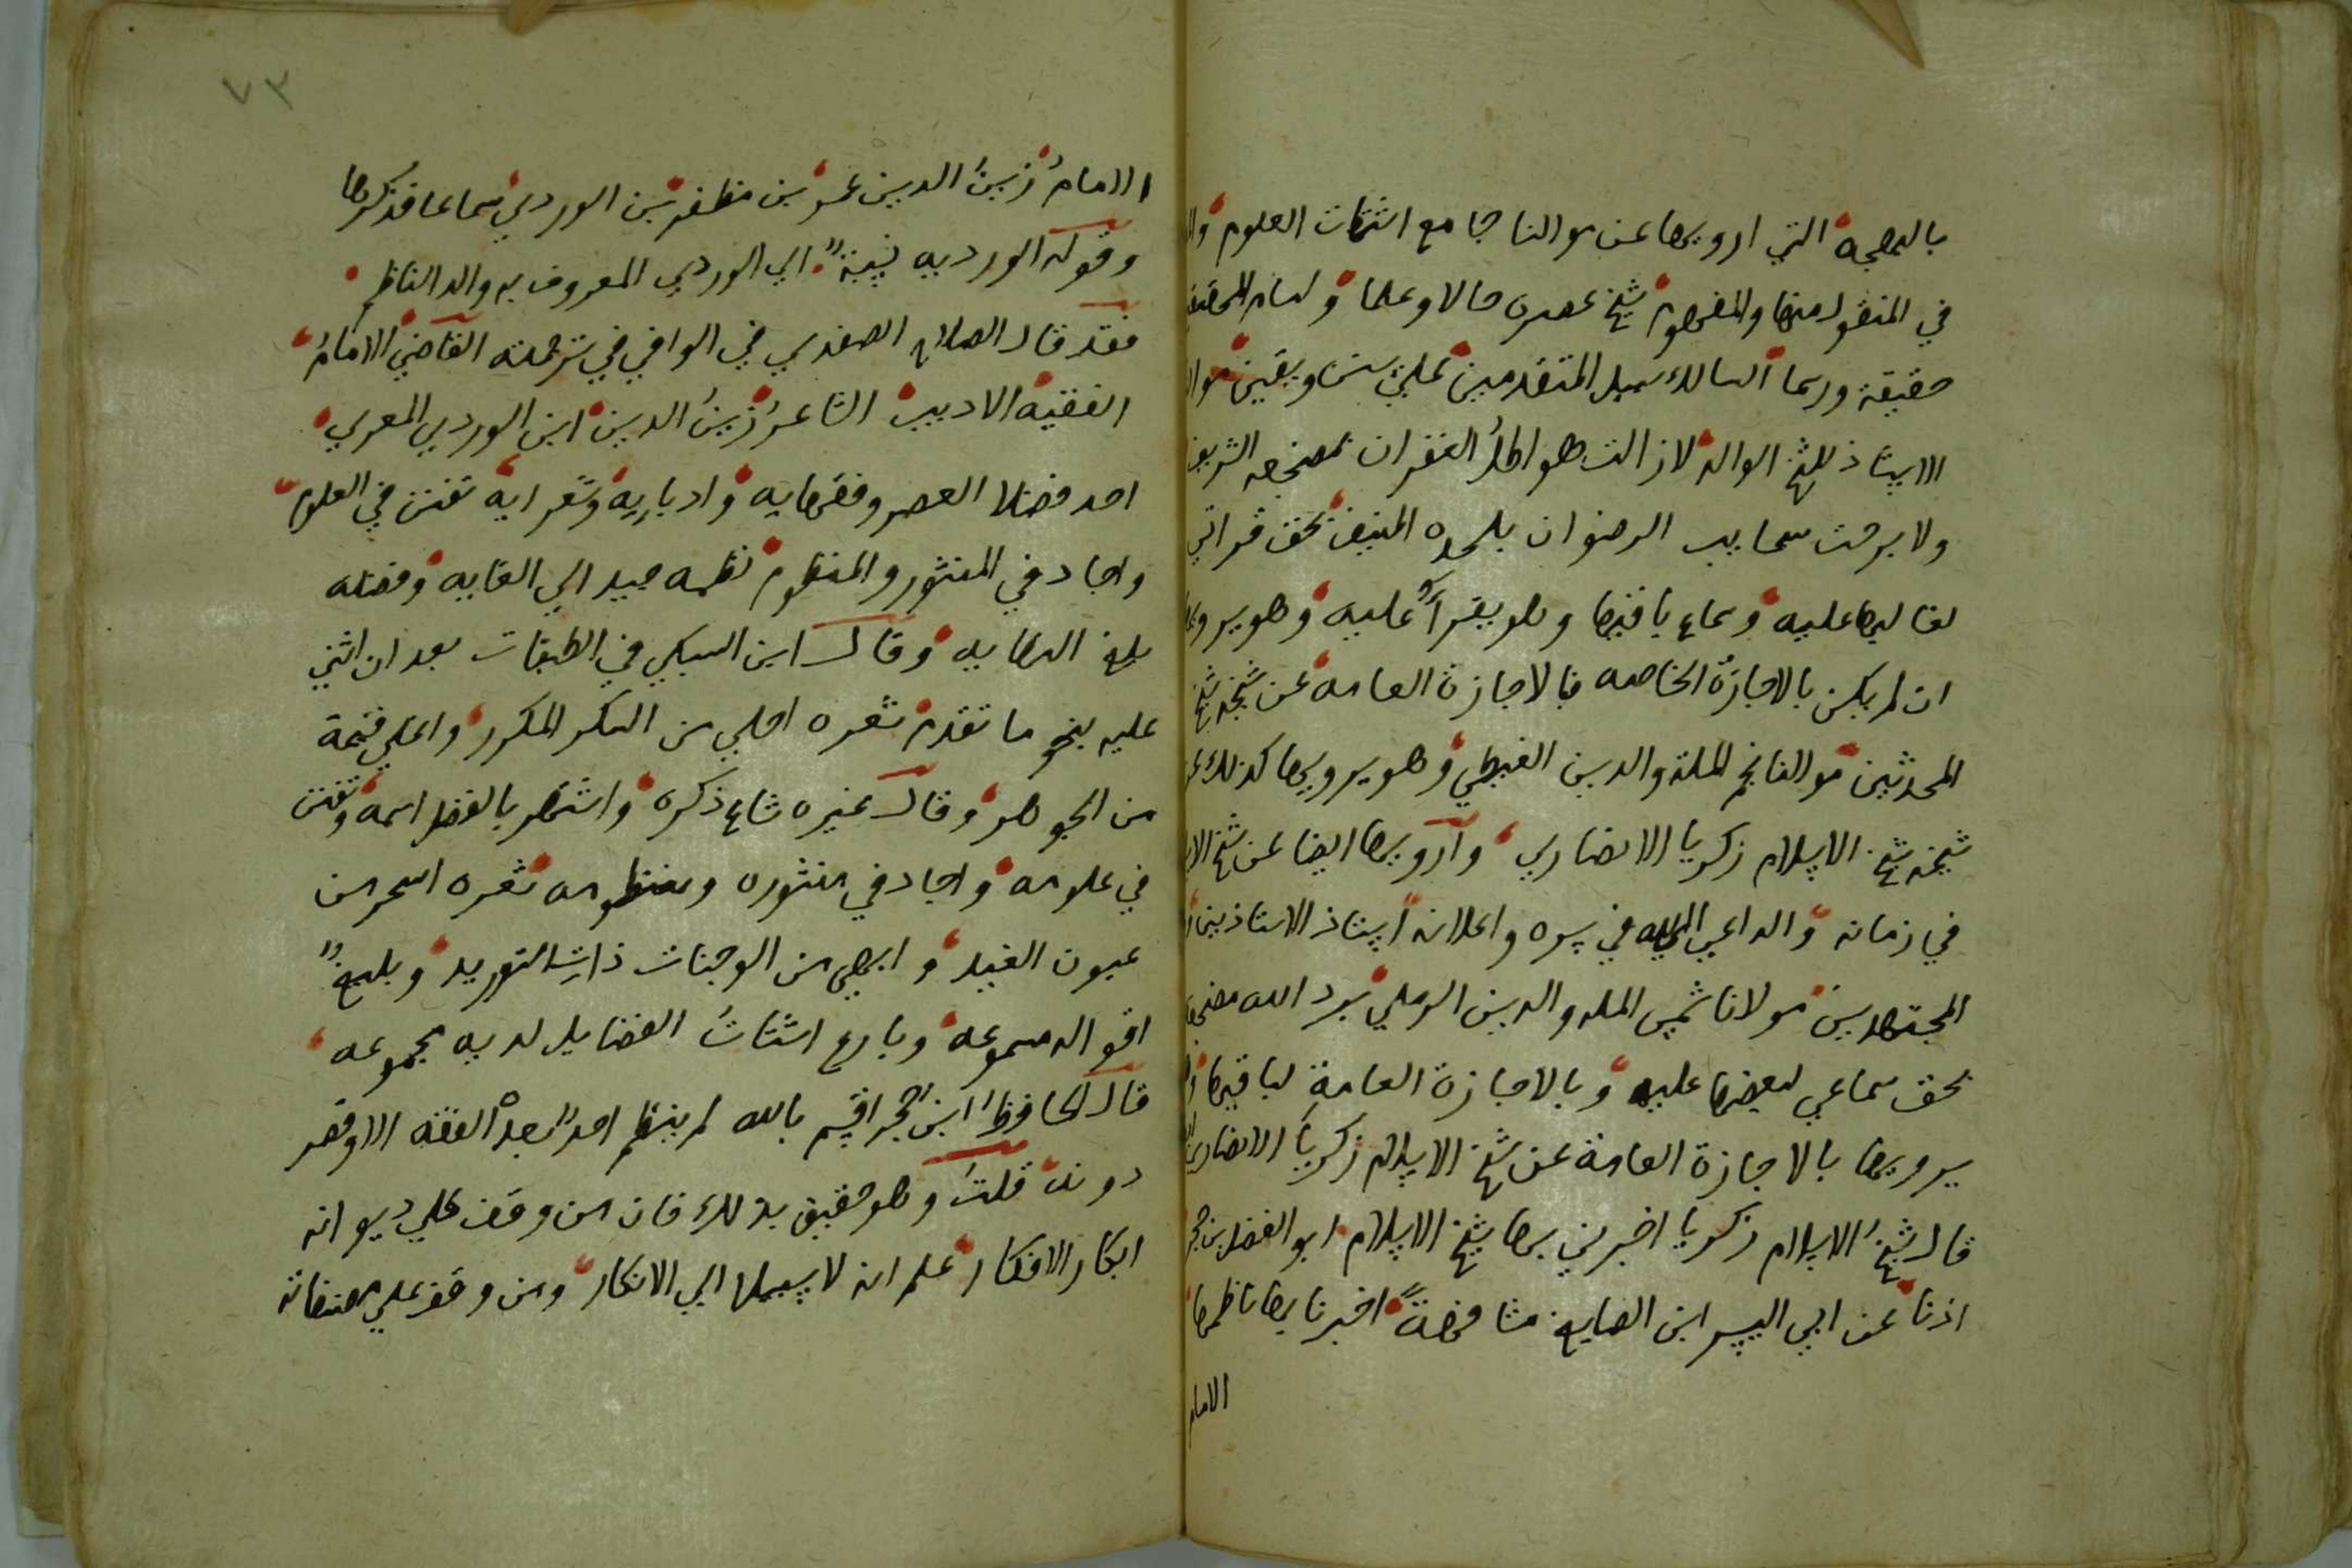 بالبهجة التي ارويها عن مولانا جامع اشتات العلوم
في المنقول منها والمفهوم شيخ عصره حالا وعلما وامام المحققين
حقيقة ورسما السالك سبيل المتقدمين علي سنن ويقين مولا
الاستاذ للشيخ الوالد لازالت هواطل الغفران بمضجعه الشريف
ولا برحت سحايب الرضوان بلحده المنيف بحق قراتي
لغالبها عليه وسماع باقيها وهو يقرأ عليه وهو يرويها
ان لم يكن بالاجازة الخاصه فبالاجازة العامه عن شيخه شيخ
المحدثين مولانا نجم الملة والدين الغيطي وهو يرويها كذلك عن
شيخه شيخ الاسلام زكريا الانصاري وارويها ايضا عن شيخ الاسلام
في زمانه والداعي الي الله في سره واعلانه استاذ الاستاذين
المجتهدين مولانا شمس المله والدين الرملي برد الله مضجعه
بحق سماعي لبعضها عليه وبالاجازة العامة لباقيها
يرويها بالاجازة العامة عن شيخ الاسلام زكريا الانصاري
قال شيخ الاسلام زكريا اخبرني بها شيخ الاسلام ابو الفضل بن حجر
اذنا عن ابي اليسر ابن الصايغ مشافهة اخبرنا بها ناظمها
الامام
٧٣
الامام زين الدين عمر بن مظفر بن الوردي سماعا فذكرها
وقوله الورديه نسبة الي الوردي المعروف به والد الناظم
فقد قال الصلاح الصفدي في الوافي في ترجمته القاضي الامام
الفقيه الاديب الشاعر زين الدين ابن الوردي المعري
احد فضلا العصر وفقهايه وادبايه وشعرايه تفنن في العلوم
واجاد في المنثور والمنظوم نظمه جيد الي الغايه وفضله
بلغ النهايه وقال ابن السبكي في الطبقات بعد ان اثني
عليه بنحو ما تقدم شعره احلي من السكر المكرر واغلي قيمة
من الجوهر وقال غيره شاع ذكره واشتهر بالفضل اسمه وتفنن
في علومه واجاد في منثوره ومنظومه شعره اسحر من
عيون الغيد وابهي من الوجنات ذات التوريد وبليغ
اقواله مسموعه وبارع اشتات الفضايل لديه مجموعه
قال الحافظ ابن حجر اقسم بالله لم ينظم احد بعده الفقه الا وقصر
دونه قلت وهو حقيق بذلك فان من وقف علي ديوانه
ابكار الافكار علم انه لا سبيل الي الانكار ومن وقف علي مصنفاته